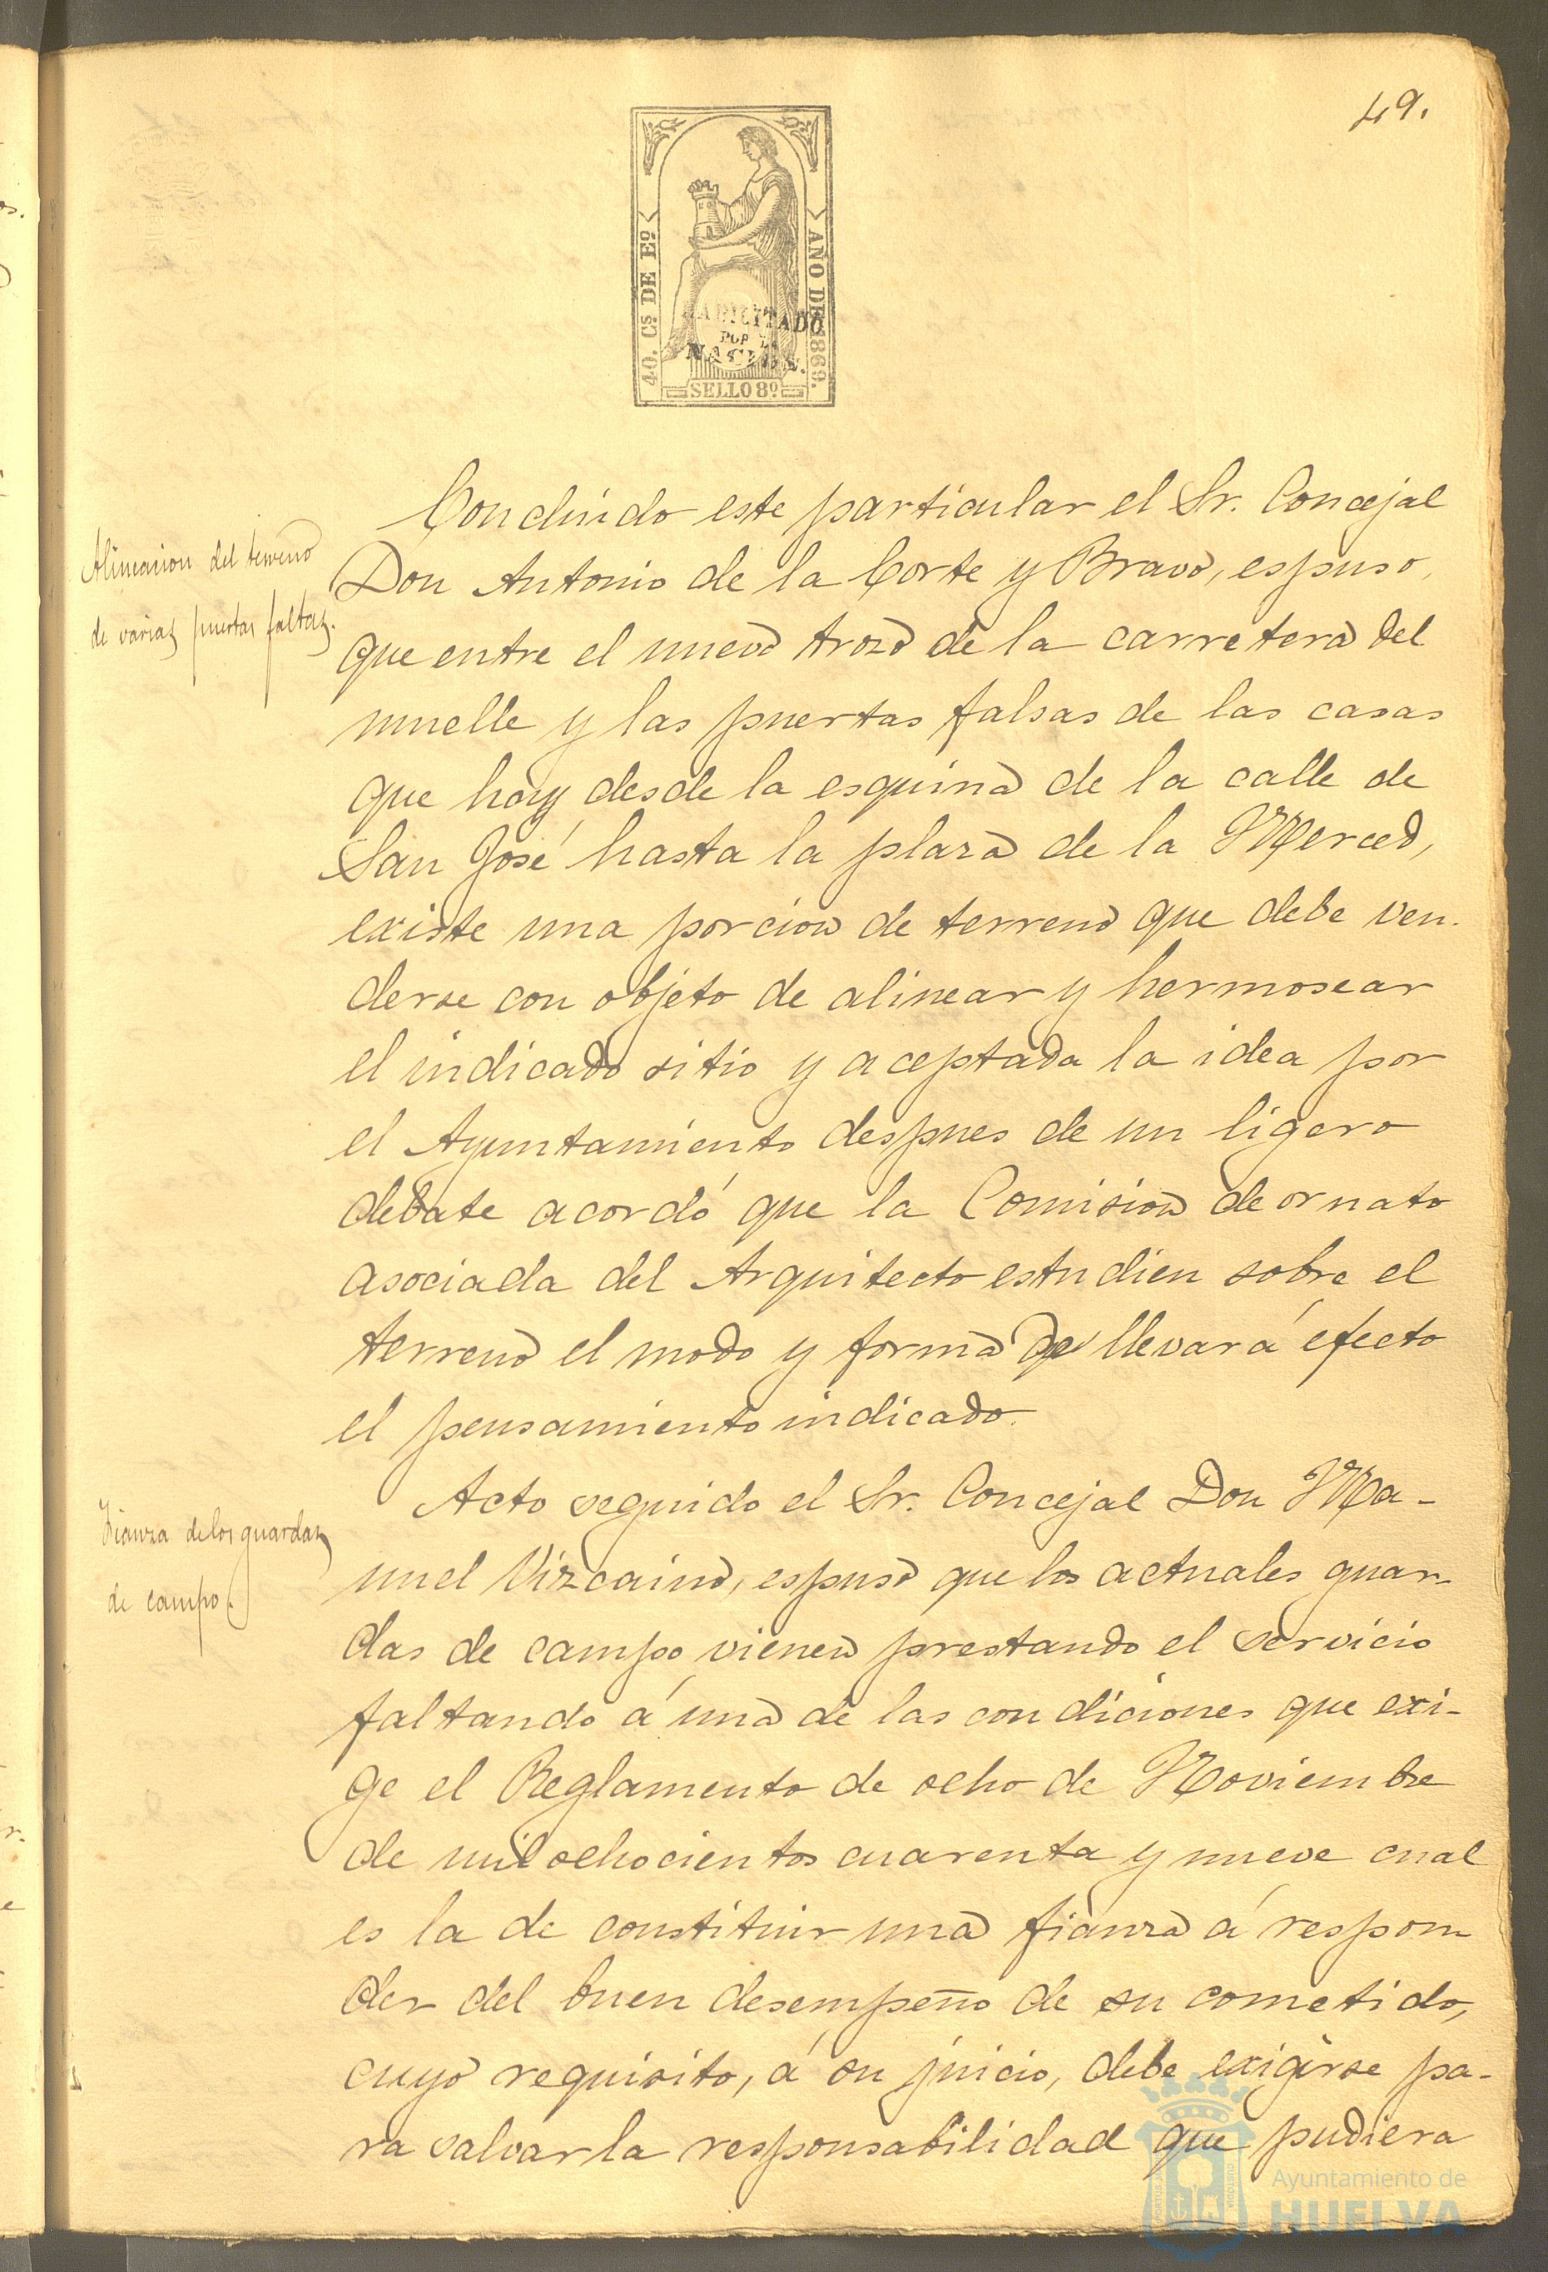 49.
40. Cs DE Eo
AÑO DE 1869.
HABILITADO
POR LA
NACION.
SELLO 8º
Alineacion del terreno
de varias puertas faltas.
Concluido este particular el Sr. Concejal
Don Antonio de la Corte y Bravo, espuso,
que entre el nuevo trozo de la carretera del
muelle y las puertas falsas de las casas
que hay desde la esquina de la calle de
San José hasta la plaza de la Merced,
existe una porcion de terreno que debe ven-
derse con objeto de alinear y hermosear
el indicado sitio y aceptada la idea por
el Ayuntamiento despues de un ligero
debate acordó que la Comision de ornato
asociada del Arquitecto estudien sobre el
terreno el modo y forma de llevar á efecto
el pensamiento indicado.
Fianza de los guardas
de campo.
Acto seguido el Sr. Concejal Don Ma-
nuel Vizcaino, espuso que los actuales guar-
das de campo vienen prestando el servicio
faltando á una de las condiciones que exi-
ge el Reglamento de ocho de Noviembre
de mil ochocientos cuarenta y nueve cual
es la de constituir una fianza á respon
der del buen desempeño de su cometido,
cuyo requisito, á su juicio, debe exigirse pa-
ra salvar la responsabilidad que pudiera
Ayuntamiento de
HUELVA